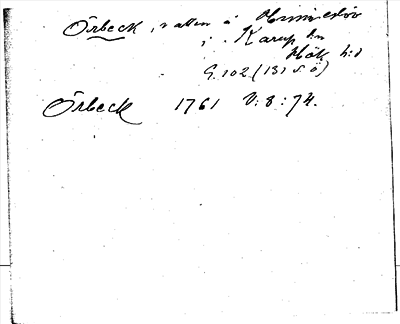 Örbeck, vatten å Hemmeslöv
i Karup sn
Höks hd
G.102 (131 S Ö)
Örbeck 1761 V:8:74.